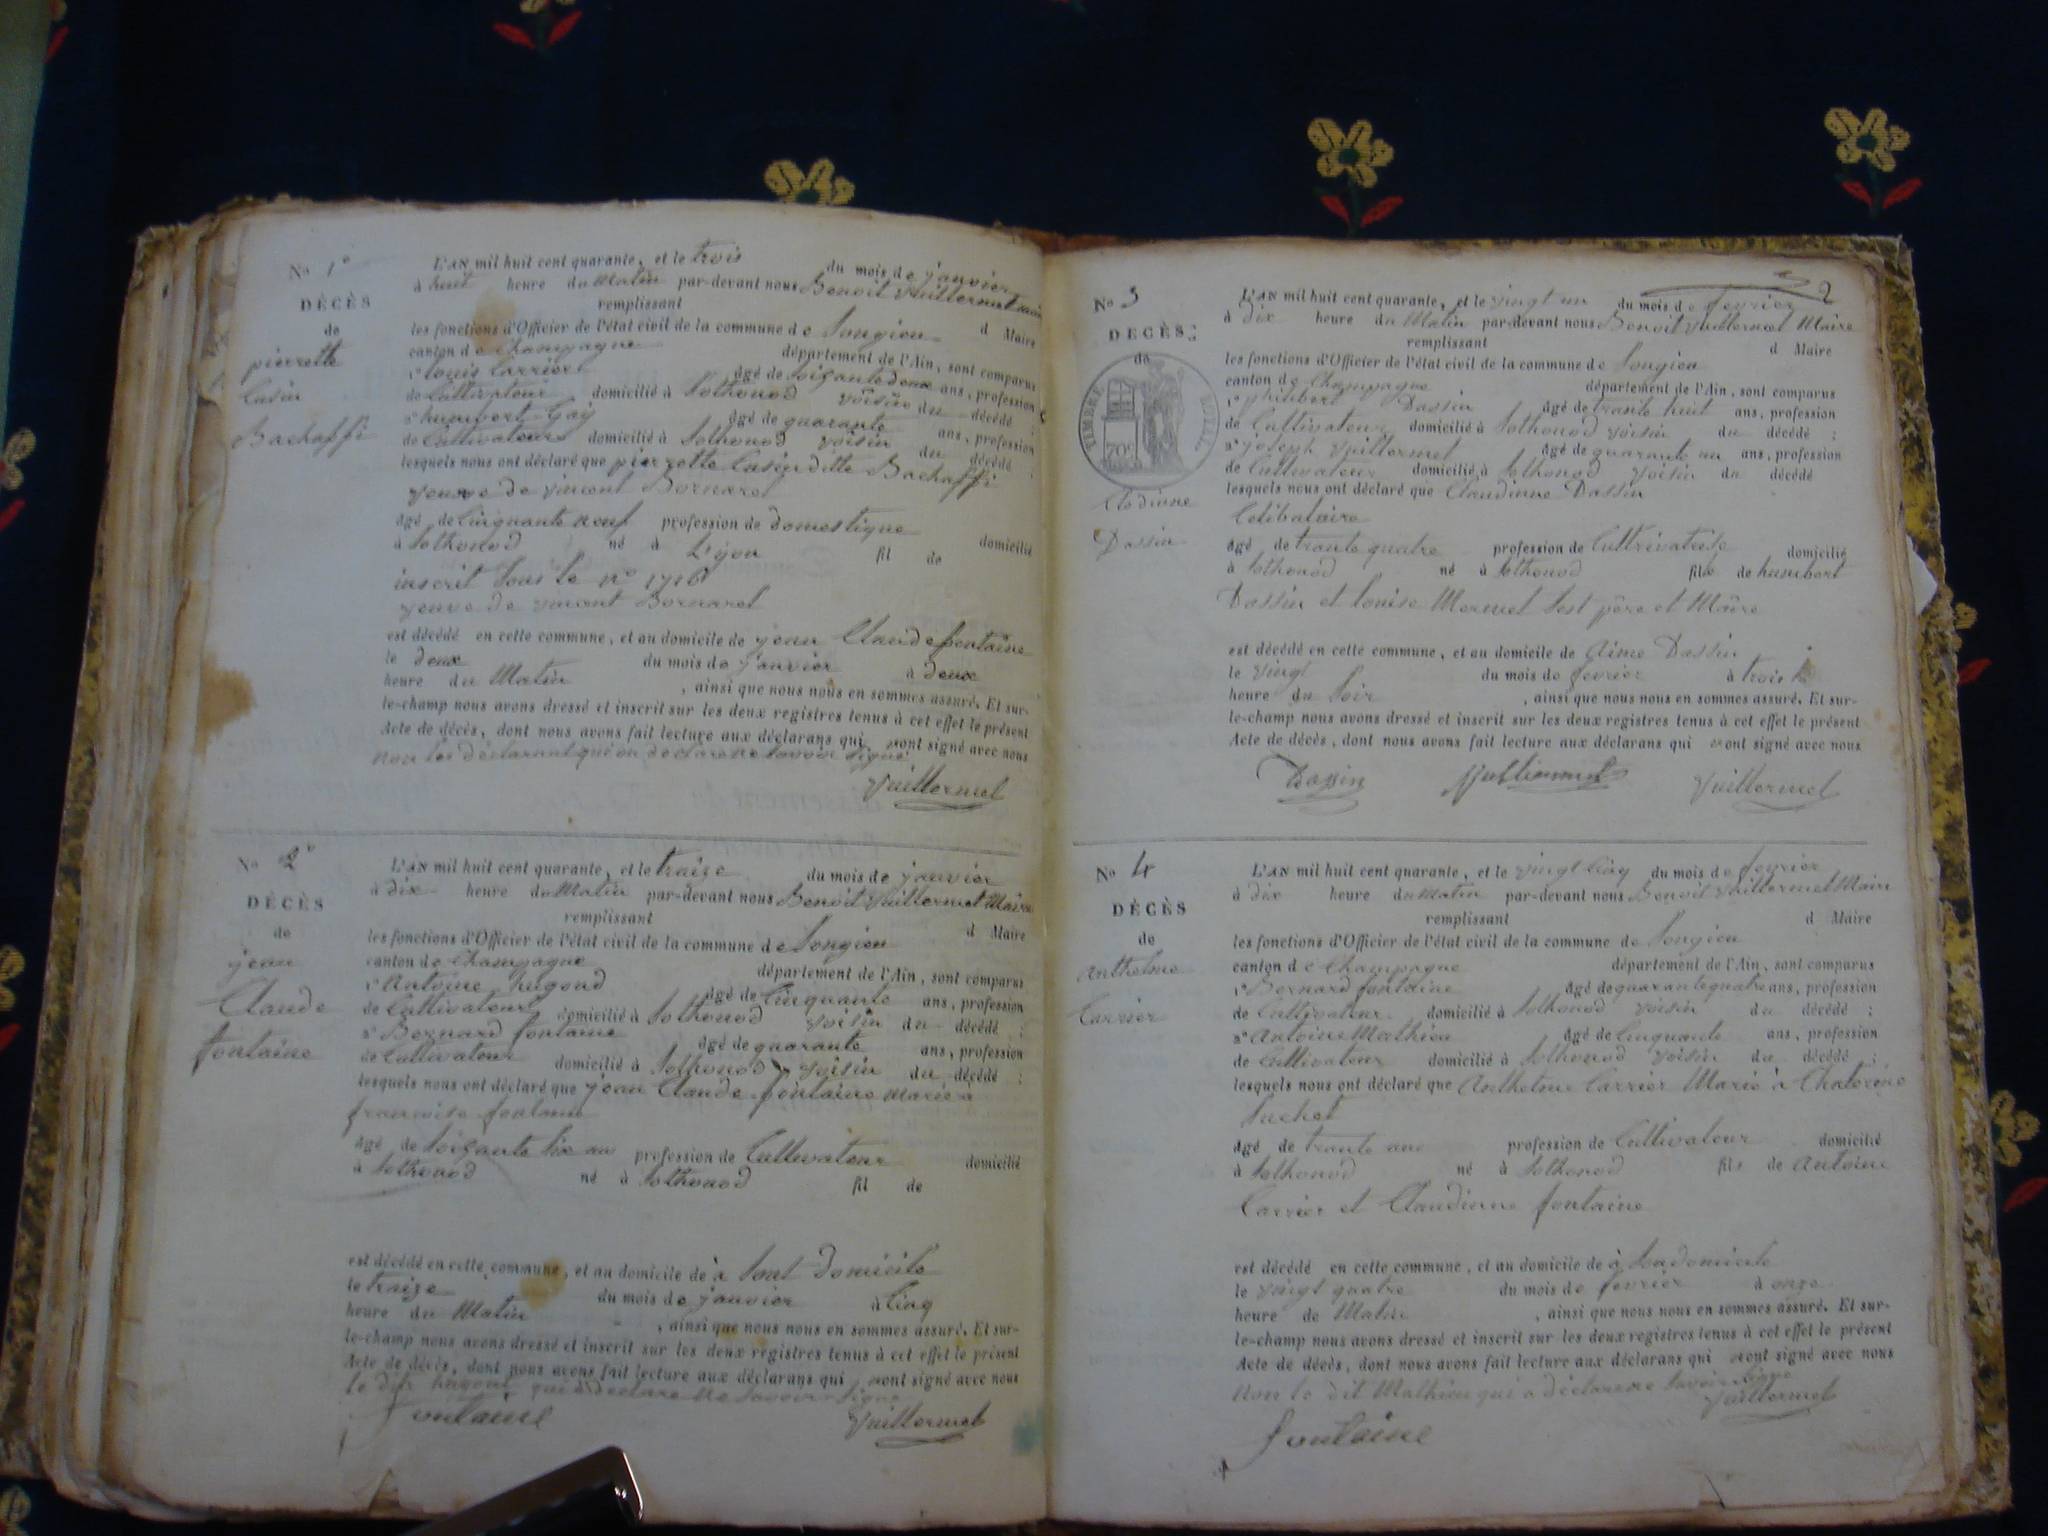 No 1°
DÉCÈS
de
pierrette
Casin
Bachaffi
L'AN mil huit cent quarante, et le trois du mois de janvier
à huit heure du Matin par-devant nous Benoit Vuillermet
remplissant d Maire
les fonctions d'Officier de l'état civil de la commune de Songieu
canton de Champagne département de l'Ain, sont comparus
1° louis Carrier âgé de soixante deux ans, profession
de Cultivateur domicilié à Sothonod voisin du décédé ;
2° humbert Gay âgé de quarante ans, profession
de Cultivateur domicilié à Sothonod voisin du décédé ;
lesquels nous ont déclaré que pierrette Casin ditte Bachaffi
veuve de vincent Bornarel
âgé de Cinquante neuf profession de domestique domicilié
à Sothonod né à Lyon fil de
inscrit sous le n° 1716
veuve de vincent Bornarel
est décédé en cette commune, et au domicile de jean Claude fontaine
le deux du mois de janvier à deux
heure du Matin , ainsi que nous nous en sommes assuré. Et sur-
le-champ nous avons dressé et inscrit sur les deux registres tenus à cet effet le présent
Acte de décès, dont nous avons fait lecture aux déclarans qui ont signé avec nous
non les déclarant qui on déclare ne savoir signé
Vuillermet
No 2°
DÉCÈS
de
jean
Claude
fontaine
L'AN mil huit cent quarante, et le traize du mois de janvier
à dix heure du Matin par-devant nous Benoit Vuillermet Maire
remplissant d Maire
les fonctions d'Officier de l'état civil de la commune de Songieu
canton de Champagne département de l'Ain, sont comparus
1° Antoine hugond âgé de Cinquante ans, profession
de Cultivateur domicilié à Sothonod voisin du décédé ;
2° Bernard fontaine âgé de quarante ans, profession
de Cultivateur domicilié à Sothonod voisin du décédé ;
lesquels nous ont déclaré que jean Claude fontaine Marié à
francoise fontaine
âgé de soixante six an profession de Cultivateur domicilié
à Sothonod né à Sothonod fil de
est décédé en cette commune, et au domicile de à sont domicile
le traize du mois de janvier à Cinq
heure du Matin , ainsi que nous nous en sommes assuré. Et sur-
le-champ nous avons dressé et inscrit sur les deux registres tenus à cet effet le présent
Acte de décès, dont nous avons fait lecture aux déclarans qui ont signé avec nous
le dit hugond qui a déclaré ne savoir signé
fontaine Vuillermet
2
No 3
DÉCÈS
de
TIMBRE ROYAL
70c
Clodinne
Dassin
L'AN mil huit cent quarante, et le vingt un du mois de fevrier
à dix heure du Matin par-devant nous Benoit Vuillermet Maire
remplissant d Maire
les fonctions d'Officier de l'état civil de la commune de Songieu
canton de Champagne département de l'Ain, sont comparus
1° phinbert Dassin âgé de trante huit ans, profession
de Cultivateur domicilié à Sothonod voisin du décédé ;
2° joseph Vuillermet âgé de quarante un ans, profession
de Cultivateur domicilié à Sothonod voisin du décédé
lesquels nous ont déclaré que Claudinne Dassin
Celibataire
âgé de trante quatre profession de Cultivatrise domicilié
à Sothonod né à Sothonod file de humbert
Dassin et louise Mermet sest père et Mâire
est décédé en cette commune, et au domicile de Aime Dassin
le vingt du mois de fevrier à trois
heure du Soir , ainsi que nous nous en sommes assuré. Et sur-
le-champ nous avons dressé et inscrit sur les deux registres tenus à cet effet le présent
Acte de décès, dont nous avons fait lecture aux déclarans qui ont signé avec nous
Dassin Vuillermet
No 4
DÉCÈS
de
Anthelme
Carrier
L'AN mil huit cent quarante, et le vingt Cinq du mois de fevrier
à dix heure du Matin par-devant nous Benoit Vuillermet Maire
remplissant d Maire
les fonctions d'Officier de l'état civil de la commune de Songieu
canton de Champagne département de l'Ain, sont comparus
1° Bernard fontaine âgé de quarante quatre ans, profession
de Cultivateur domicilié à Sothonod voisin du décédé ;
2° Antoine Mathieu âgé de Cinquante ans, profession
de Cultivateur domicilié à Sothonod voisin du décédé ;
lesquels nous ont déclaré que Anthelme Carrier Marié à Chaterine
Suchet
âgé de trante ans profession de Cultivateur domicilié
à Sothonod né à Sothonod fils de Antoine
Carrier et Claudinne fontaine
est décédé en cette commune, et au domicile de à Son domicile
le vingt quatre du mois de fevrier à onze
heure de Matin , ainsi que nous nous en sommes assuré. Et sur-
le-champ nous avons dressé et inscrit sur les deux registres tenus à cet effet le présent
Acte de décès, dont nous avons fait lecture aux déclarans qui ont signé avec nous
non le dit Mathieu qui a déclaré ne savoir signé
Vuillermet
fontaine